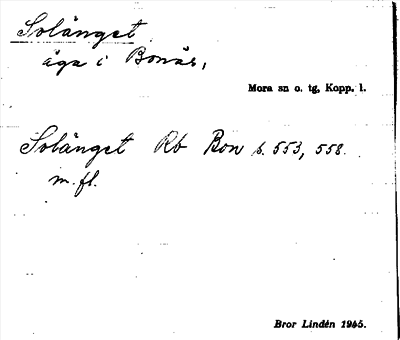 Solänget
äga i Bonäs,
Mora sn o. tg, Kopp. l.
Solänget Rb Bon s. 553, 558.
m. fl.
Bror Lindén 1945.